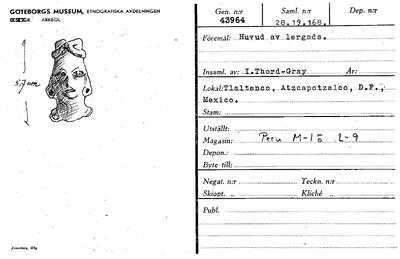 GÖTEBORGS MUSEUM, ETNOGRAFISKA AVDELNINGEN
ARKEOL.
5,7 cm
Gen. n:r
43964
Saml. n:r
28.19.168.
Dep. n:r
Föremål: Huvud av lergods.
Insaml. av: I.Thord-Gray År:
Lokal: Tlaltenco, Atzcapotzalco, D.F.,
Mexico.
Stam:
Utställt:
Magasin: Peru M-15 L-9
Depon.:
Byte till:
Negat. n:r Teckn. n:r
Skiopt. „ Kliché „
Publ.